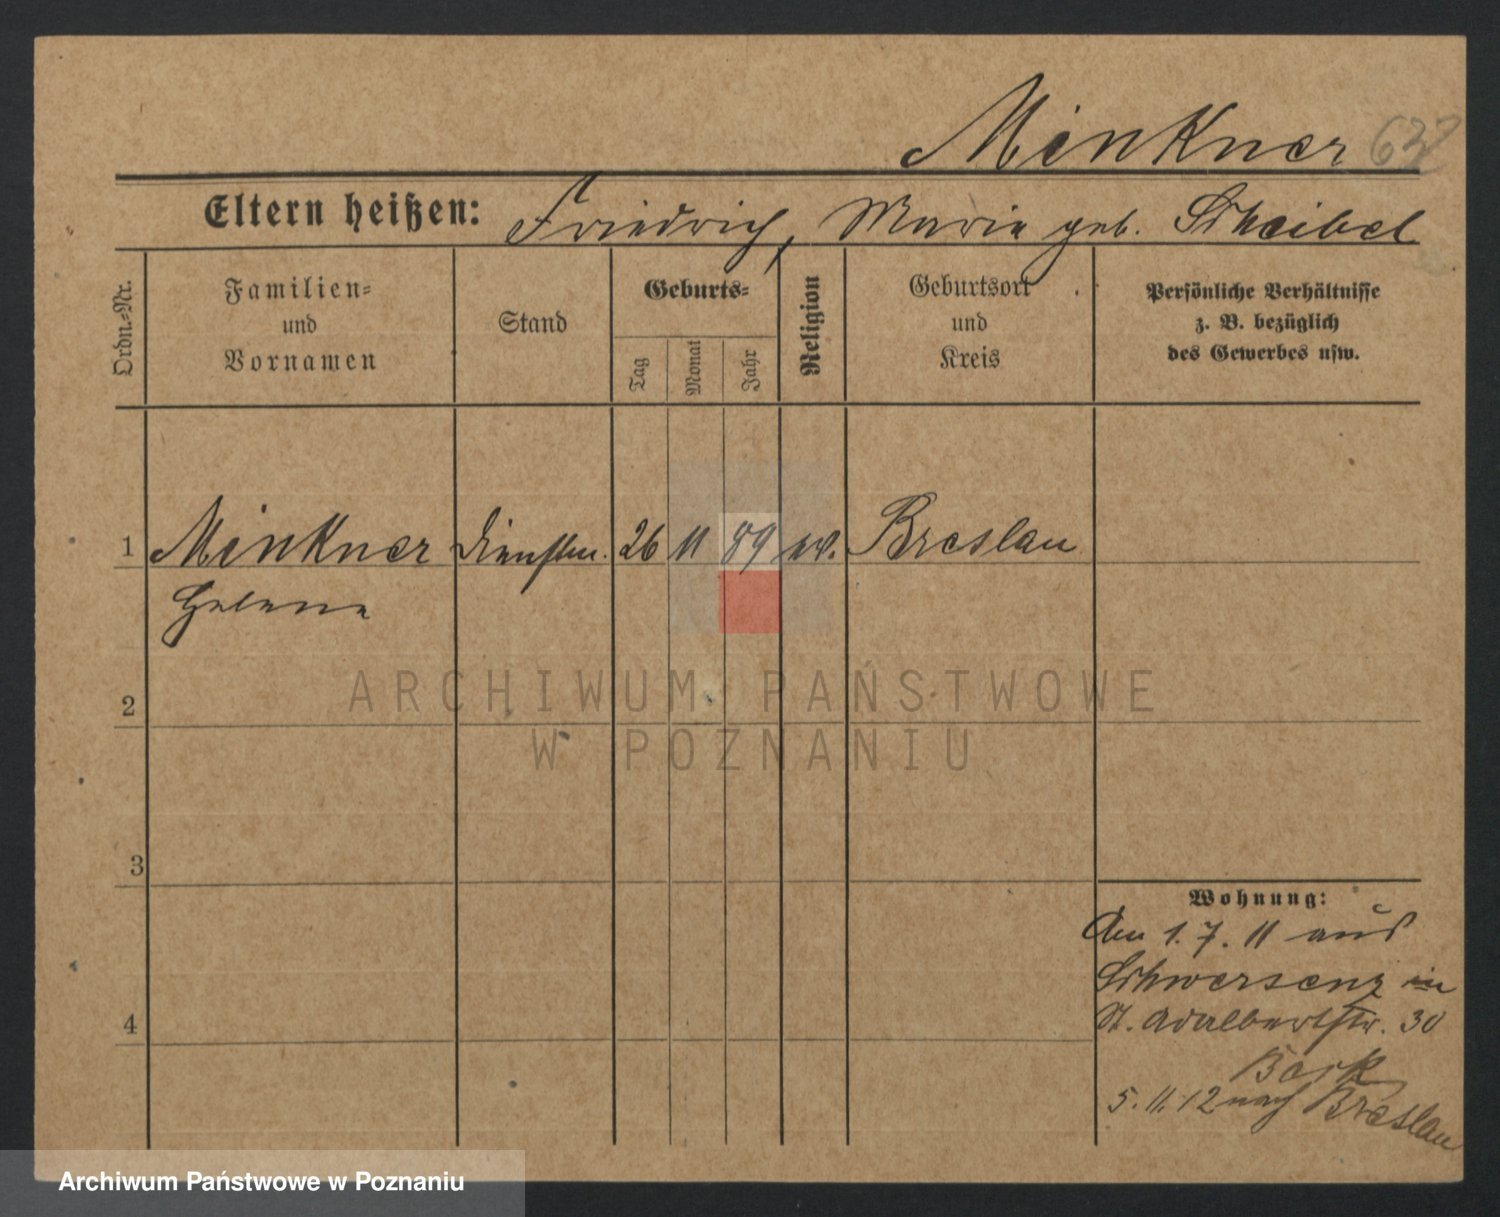 Minkner 632
Eltern heißen: Friedrich, Marie geb. Scheibel
Ordn.-Nr.
Familien-
und
Vornamen
Stand
Geburts-
Tag
Monat
Jahr
Religion
Geburtsort
und
Kreis
Persönliche Verhältnisse
z. B. bezüglich
des Gewerbes usw.
1 Minkner Dienstm. 26 11 89 ev. Breslau
Helene
ARCHIWUM PAŃSTWOWE
2
W POZNANIU
3
Wohnung:
Am 1. 7. 11 aus
Schwersenz in
4
St. Adalbertstr. 30
5. 11. 12 nach Breslau
Archiwum Państwowe w Poznaniu